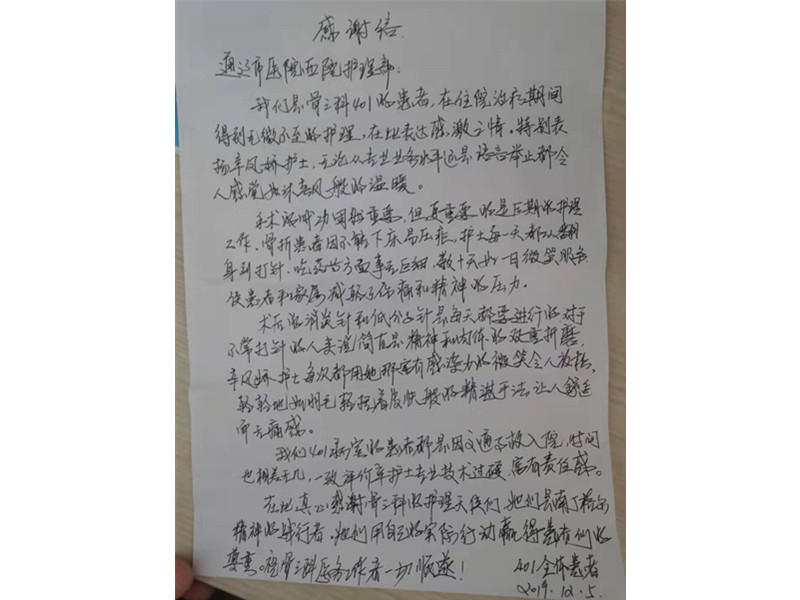 感谢信
通辽市医院西院护理部:
我们是骨三科401的患者,在住院治疗期间
得到无微不至的护理,在此表达感激之情。特别表
扬辛凤娇护士,无论从专业业务水平还是语言举止都令
人感觉如沐春风般的温暖。
手术成功固然重要,但更重要的是后期的护理
工作,骨折患者因不能下床易压疮,护士每一天都从翻
身到打针、吃药等方面事无巨细,数十天如一日微笑服务
使患者和家属减轻了伤痛和精神的压力。
术后的消炎针和低分子针是每天都要进行的对于
不常打针的人来说简直是精神和肉体的双重折磨,
辛凤娇护士每次都用她那富有感染力的微笑令人放松,
轻轻地
般的精湛手法让人舒适
而无痛感。
我们401病室的患者都是因交通事故入院,时间
也相差无几,一致评价辛护士专业技术过硬,富有责任感。
在此真心感谢骨三科的护理天使们,她们是南丁格尔
精神的践行者,她们用自己的实际行动赢得患者们的
尊重。祝骨三科医务工作者一切顺遂!
401全体患者
2019.12.5.